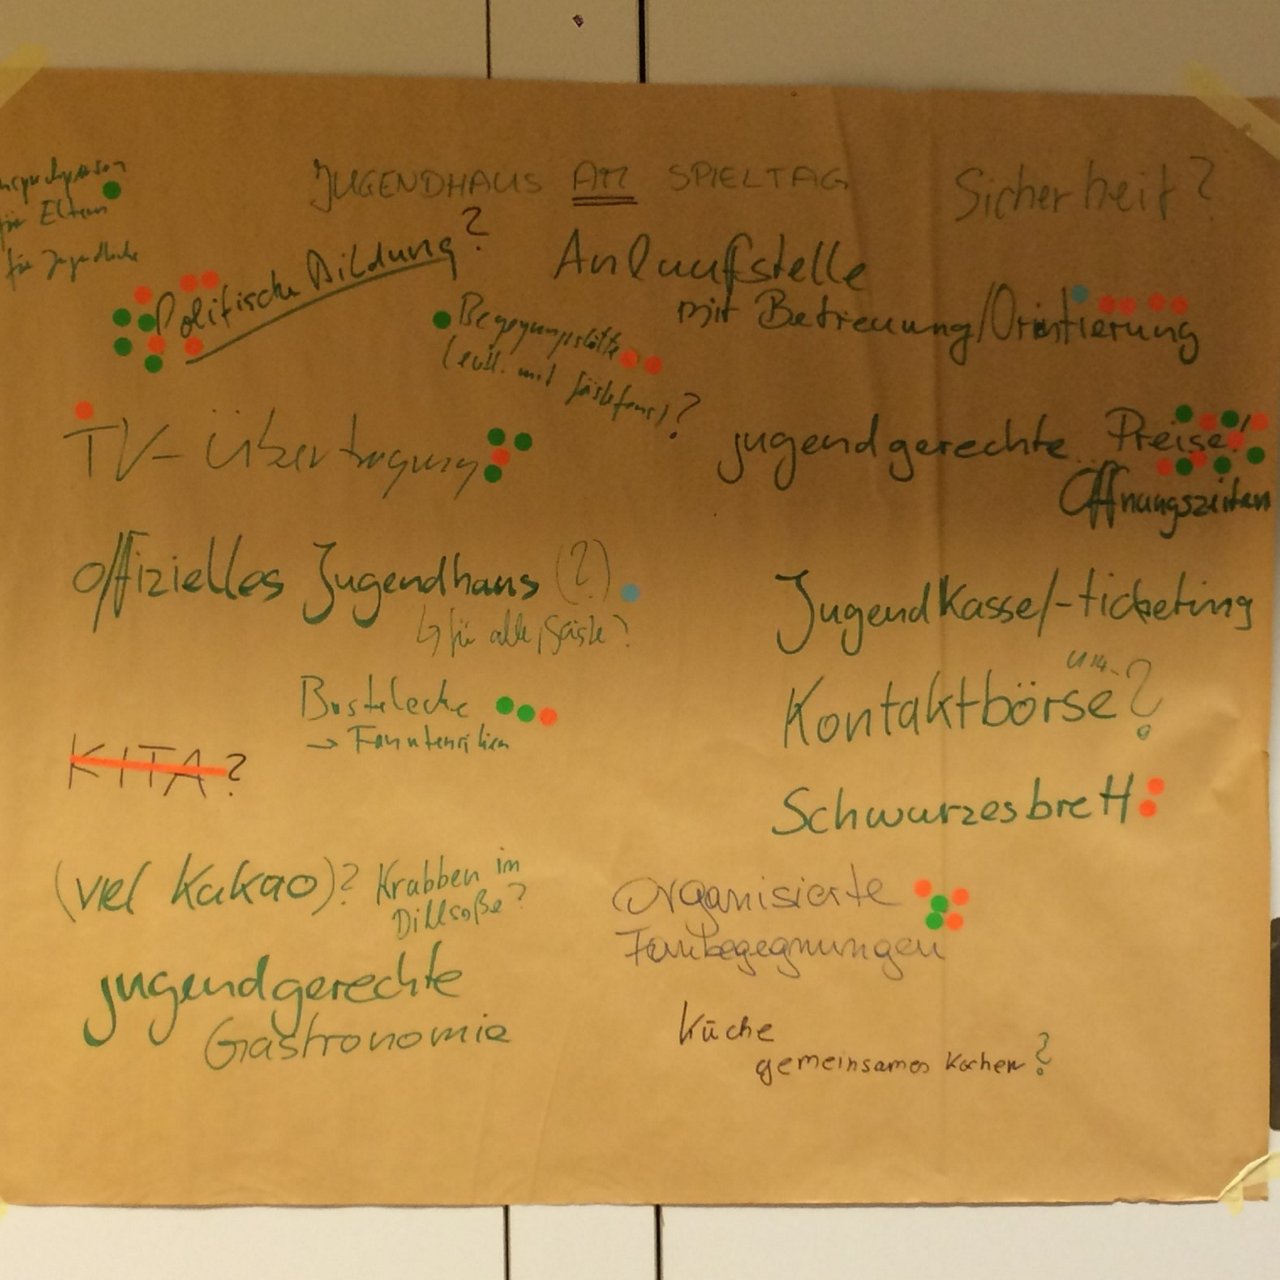 JUGENDHAUS AM SPIELTAG
Sicherheit?
für Eltern
für Jugendliche
Politische Bildung?
Anlaufstelle
mit Betreuung/Orientierung
Begegnungsstätte
(evtl. mit Gästefans)?
TV-Übertragung
jugendgerechte Preise!
Öffnungszeiten
offizielles Jugendhaus (?)
↳ für alle, Gäste?
Jugendkasse/-ticketing
Bastelecke
→ Fanutensilien
Kontaktbörse?
KITA?
Schwarzesbrett
(viel Kakao)? Krabben im
Dillsoße?
organisierte
Fanbegegnungen
jugendgerechte
Gastronomie
Küche
gemeinsames Kochen?